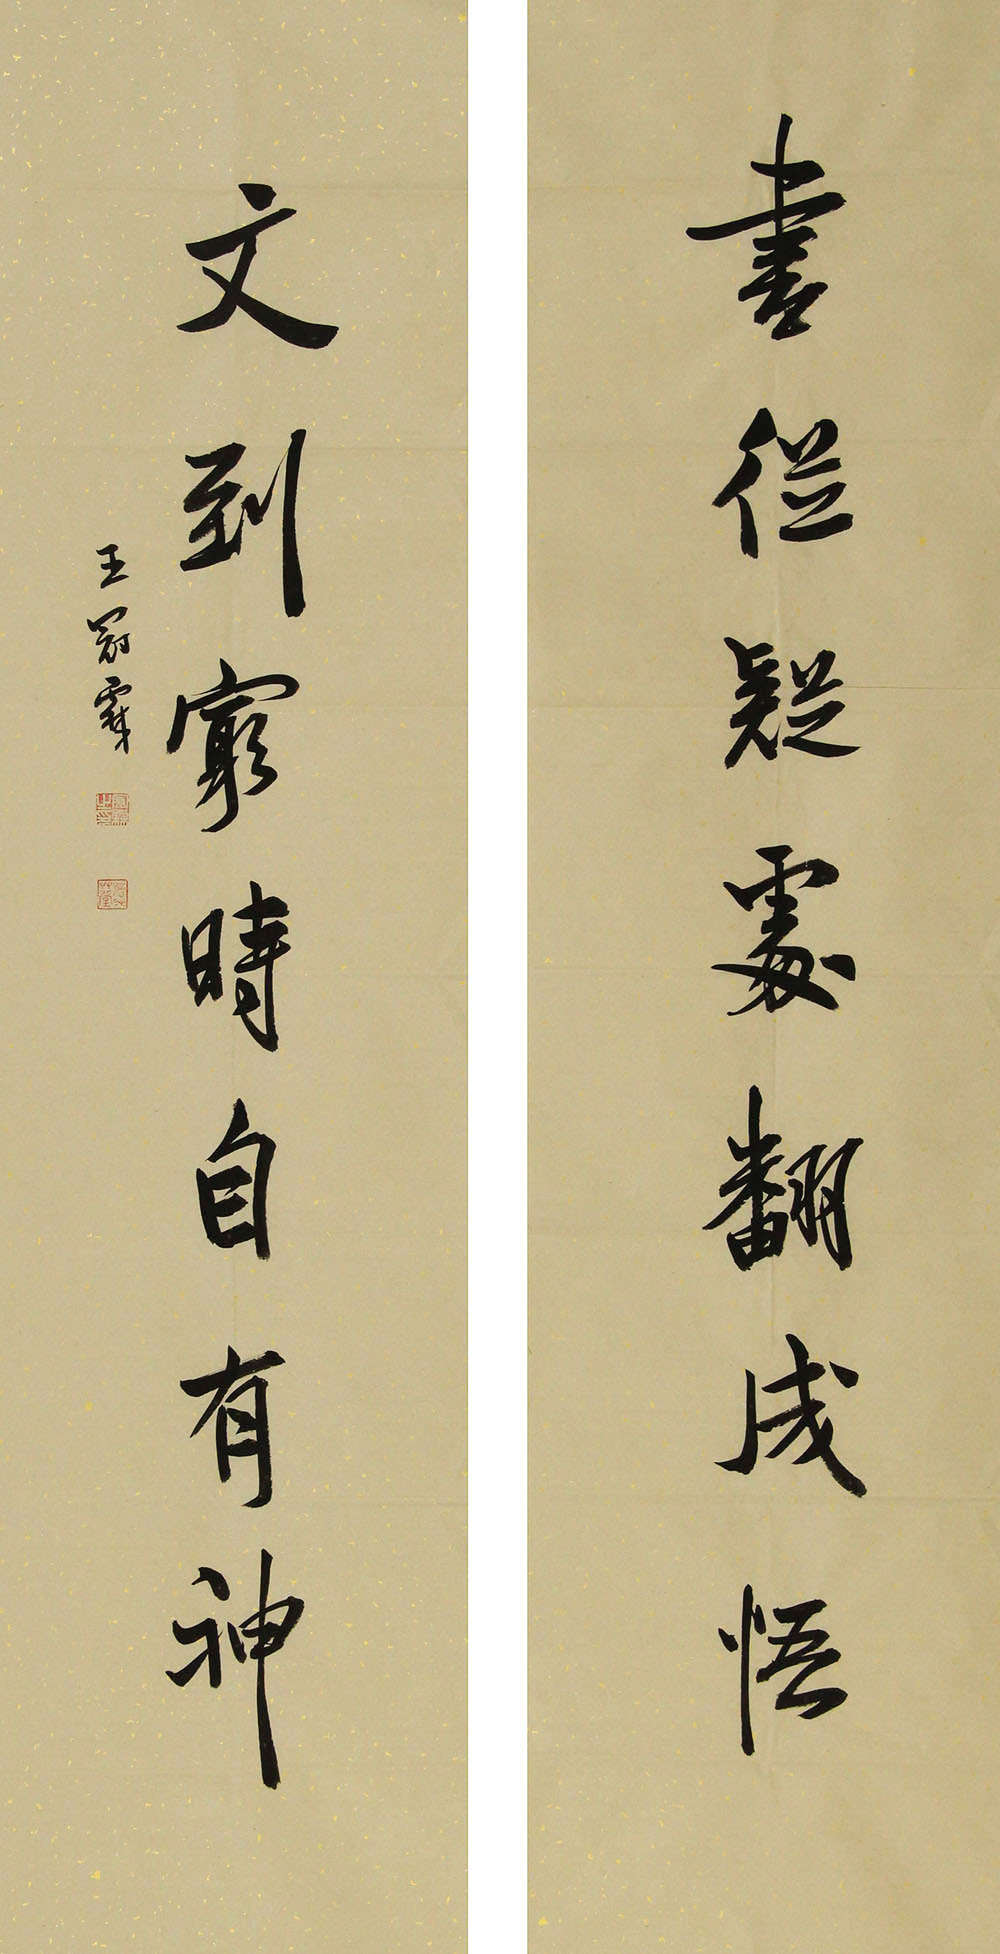 書從疑處翻成悟
文到窮時自有神
王冠霖